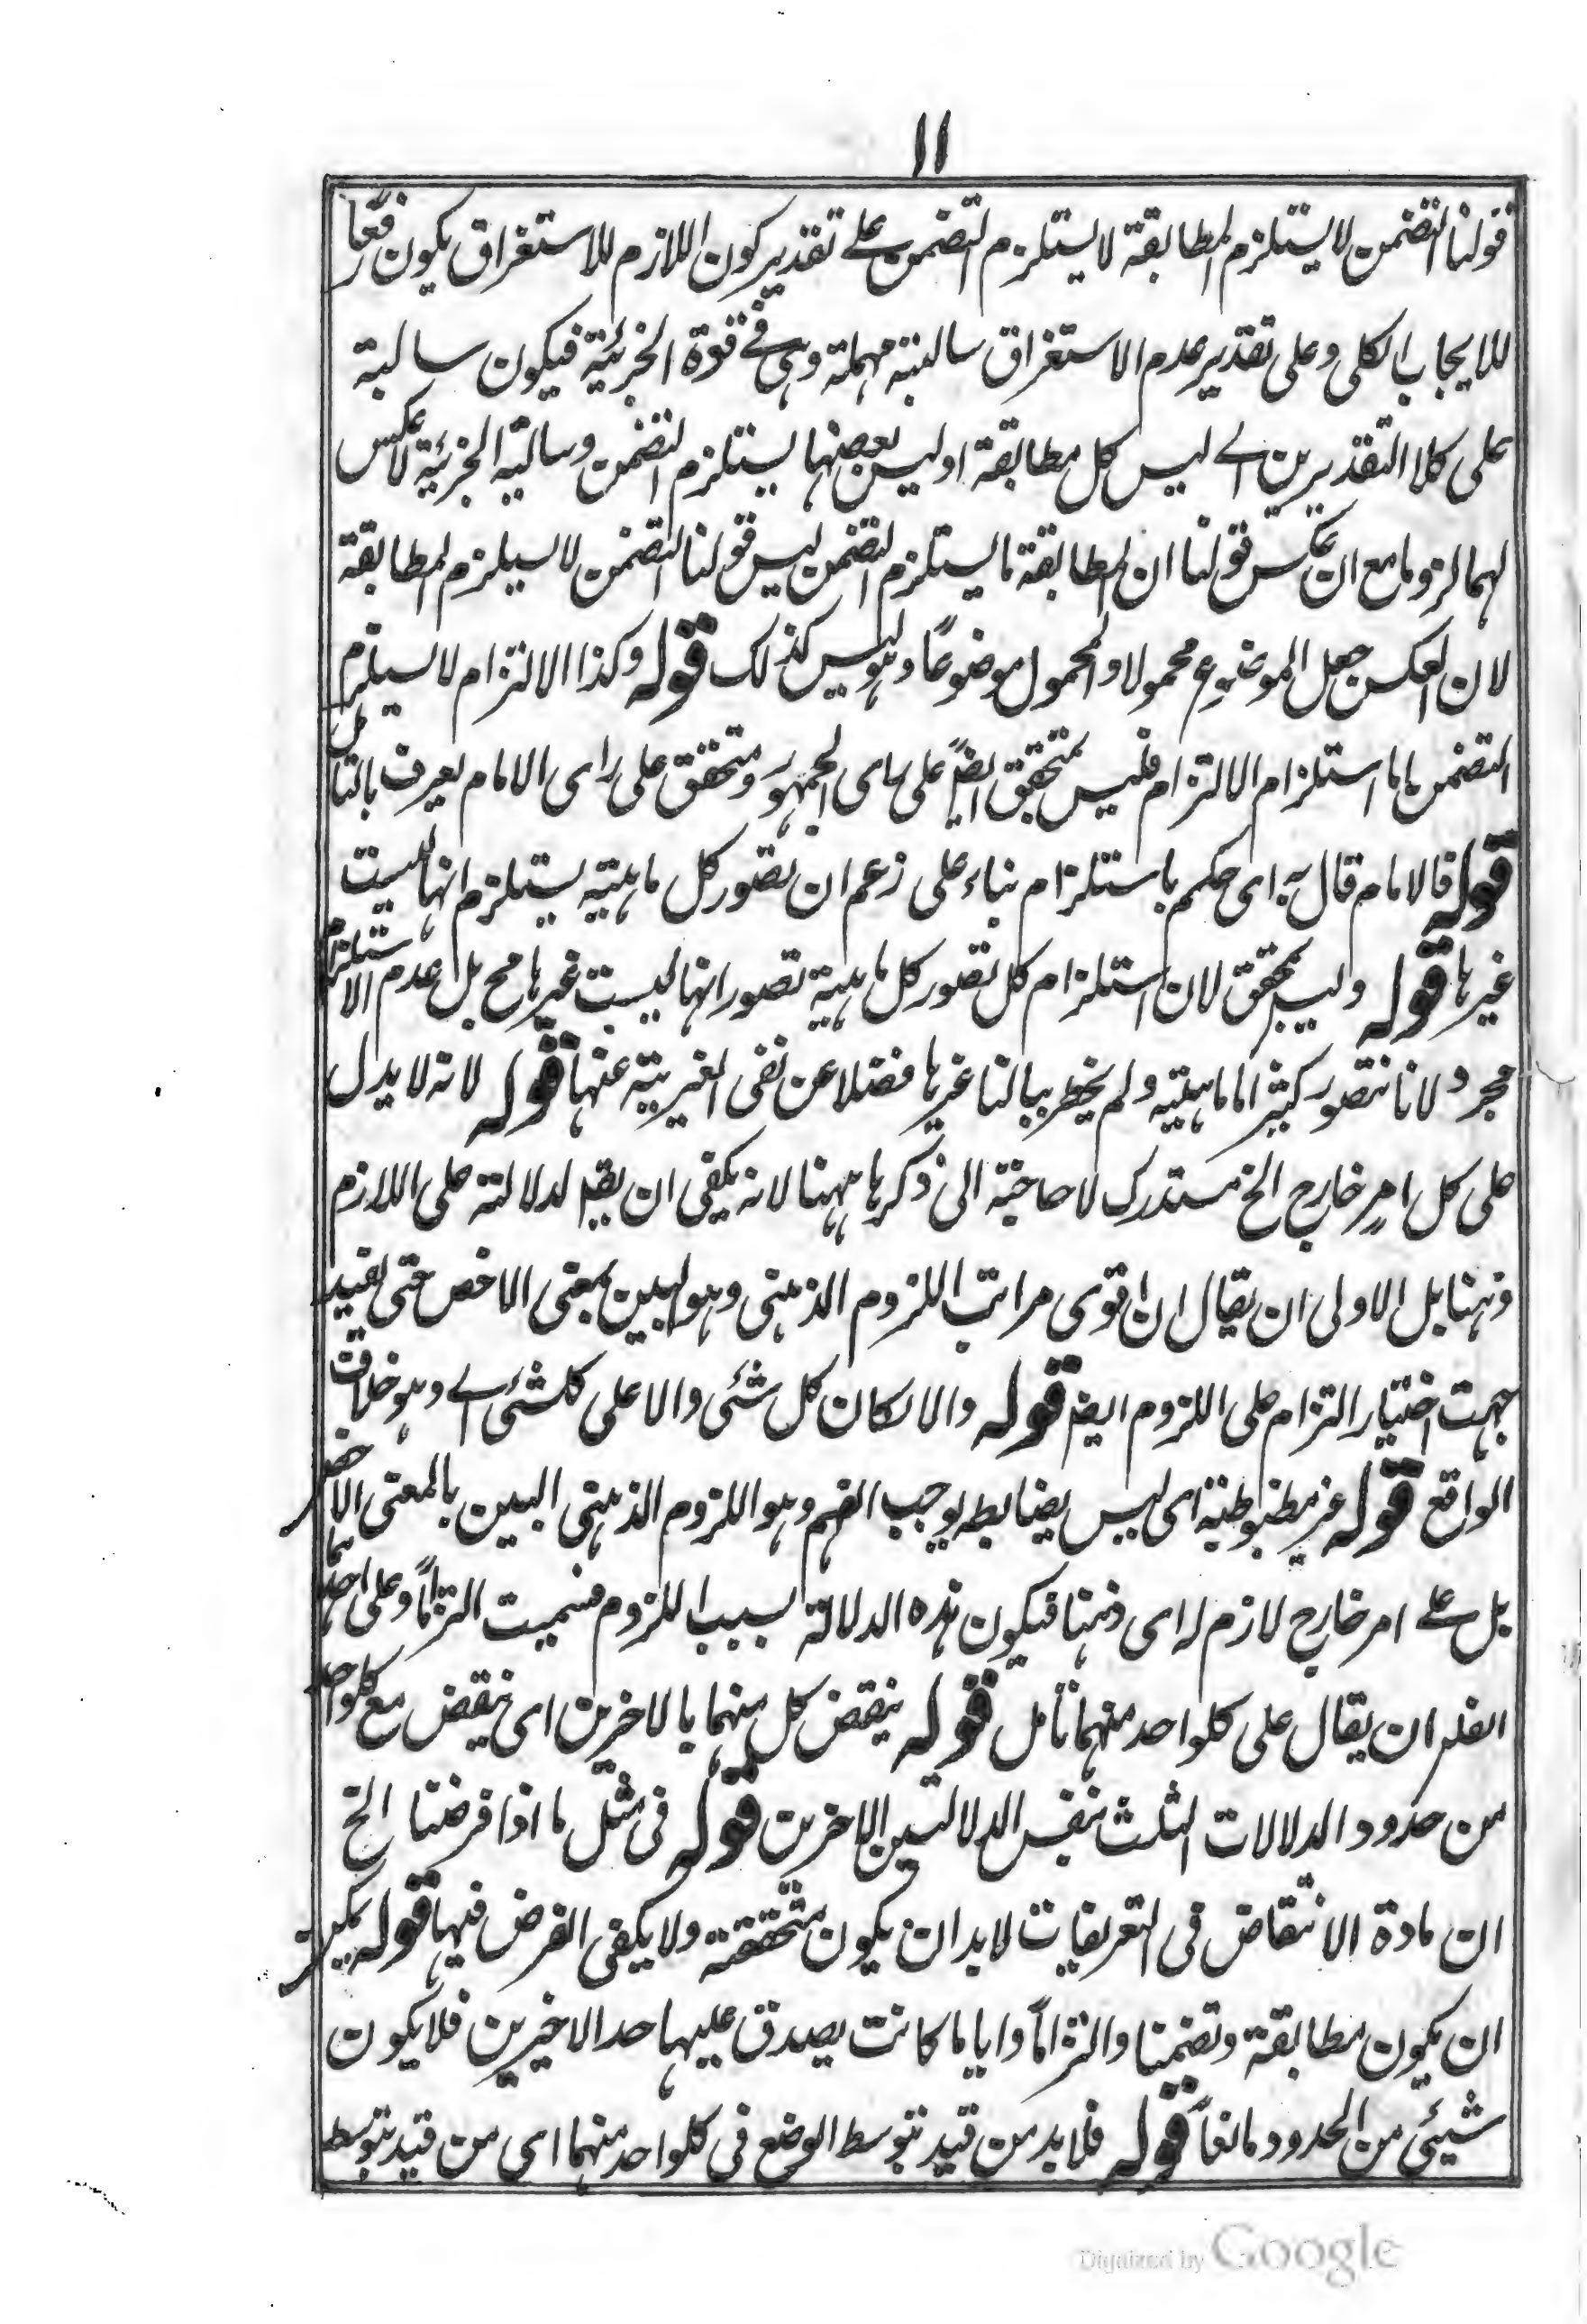 ١١
قولنا التضمن لا يستلزم المطابقة لا يستلزم التضمن على تقدير كون اللازم للاستغراق يكون رفعًا
للايجاب الكلى وعلى تقدير عدم الاستغراق سالبتة مهملة وهى فى قوة الجزئية فيكون سالبة
على كلا التقديرين اے ليس كل مطابقة او ليس بعضها يستلزم التضمن وسالبة الجزئية لا عكس
لهما لزوما مع ان عكس قولنا ان المطابقة ما يستلزم التضمن ليس قولنا التضمن لا يستلزم المطابقة
لان العكس جعل الموضوع محمولا والمحمول موضوعًا وهو ليس كذلك قوله وكذا الالتزام لا يستلزم
التضمن اما استلزام الالتزام فليس بمتحقق ايضًا على راى الجمهور ومتحقق على راى الامام يعرف بالتامل
قوله فالامام قال به اى حكم باستلزام بناء على زعم ان تصور كل ماهيته يستلزم انها ليست
غيرها قوله وليس بمحقق لان استلزام كل تصور كل ماهية تصور انها ليست غيرها مح بل عدم الاستلزام
مجرد ولانا نتصور كثيرا ما ماهيته ولم يخطر ببالنا غيرها فضلا عن نفى الغيرية عنها قوله لانه لا يدل
على كل امر خارج الخ مستدرك لا حاجتة الى ذكرها ههنا لانه يكفى ان يقيل لدلالتة على اللازم
ذهنا بل الاولى ان يقال ان اقوى مراتب اللزوم الذهنى وهو البين بمعنى الاخص حتى يفيد
جهت اختيار التزام على اللزوم ايضا قوله والا لكان كل شئى والا على كلشئى اے وهو خلاف
الواقع قوله غير مضبوطتة اى ليس بضابطه يوجب الفهم وهو اللزوم الذهنى البين بالمعنى الاخص
بل على امر خارج لازم له اى ذهنا فيكون هذه الدلالة بسبب اللزوم فسميت التزامًا وعلى احدهما
ان يقال على كلواحد منهما تامل قوله ينقض كل منهما بالاخرين اى ينقض مع كلواحد
من حدود الدلالات الثلث بنفس الدلالتين الاخرين قوله فى مثل ما اذا فرضنا الخ
ان مادة الانتقاض فى التعريفات لا بد ان يكون متحققتة ولا يكفى الفرض فيها قوله يمكن
ان يكون مطابقة وتضمنا والتزامًا وايا ما كانت يصدق عليها حد الاخيرين فلا يكون
شيئى من الحدود مانعًا قوله فلا بد من قيد بتوسط الوضع فى كلواحد منهما اى من قيد بتوسط
Digitized by Google